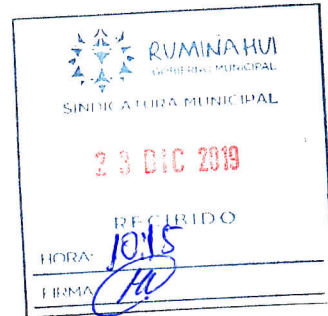 RUMIÑAHUI
GOBIERNO MUNICIPAL
SINDICATURA MUNICIPAL
23 DIC 2019
RECIBIDO
HORA: 10:15
FIRMA